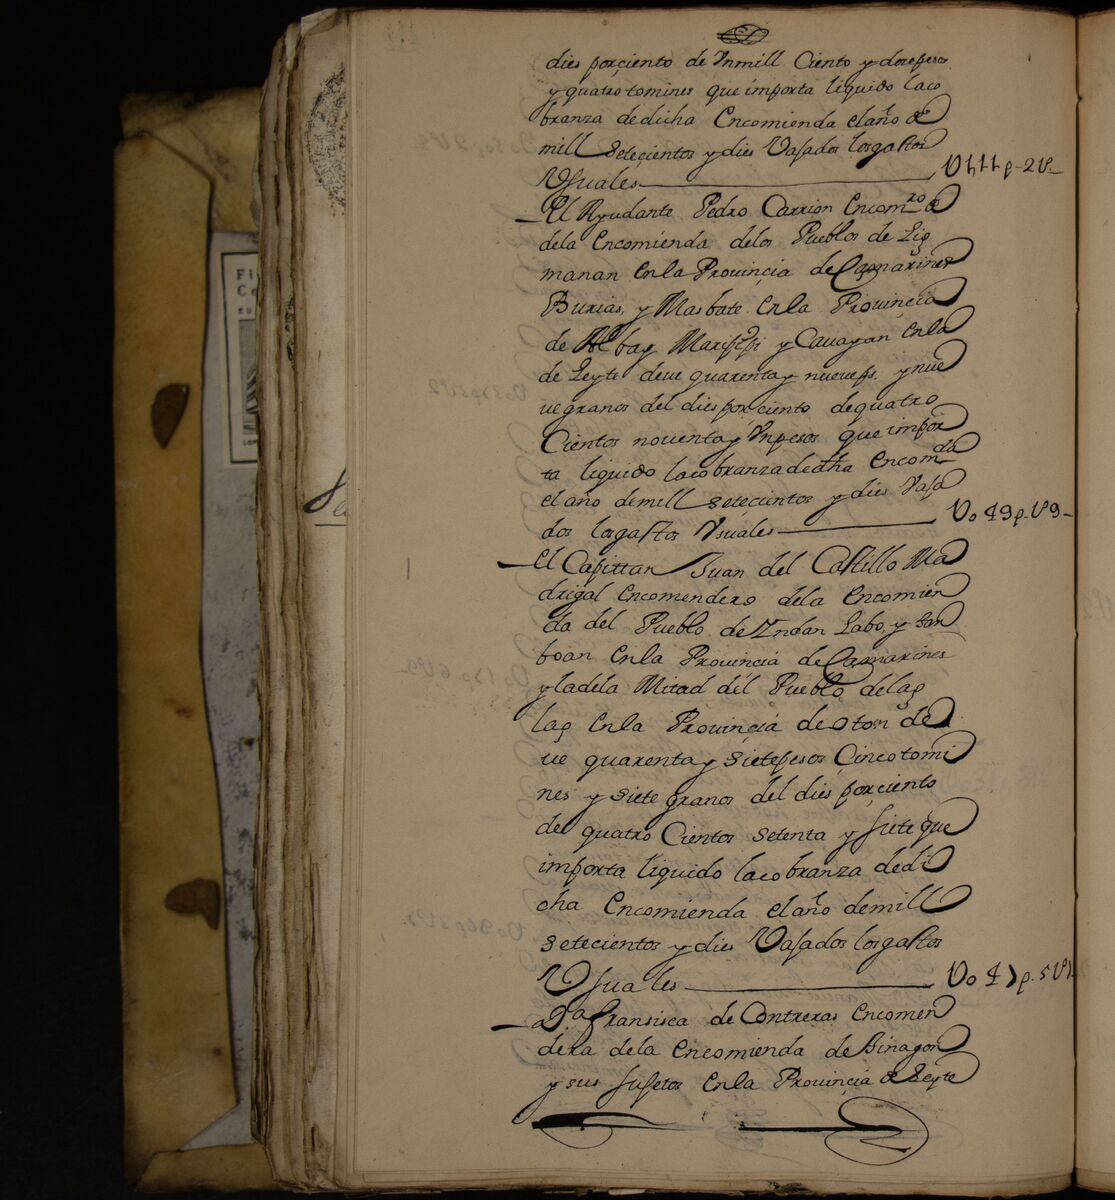 dies porciento de Vnmill Ciento y dose pesos
y quatro tomines que importa liquido la co
branza de dicha Encomienda el año de
mill setecientos y dies Vajados los gastos
Vsuales
El Ayudante Pedro Carrion Encom.ro
de la Encomienda de los Pueblos de Lig
manan En la Provincia de Camarines
Burias, y Masbate En la Provincia
de Albay Maripipi y Cauayan En la
de Leyte deve quarenta y nueve ps. y nue
ue granos del dies por ciento de quatro
Cientos noventa y Vn pesos que impor
ta liquido la cobranza de dha Encom.da
el año de mill setecientos y dies Vaja
dos los gastos Vsuales
El Capittan Juan del Castillo Ma
drigal encomendero de la Encomien
da del Pueblo de Indan Labo, y san
boan En la Provincia de Camarines
y la de la Mitad del Pueblo de lag
lag En la Provincia de oton de
ue quarenta y siete pesos Cinco tomi
nes y siete granos del dies por ciento
de quatro Cientos setenta y siete que
importa liquido la cobranza de di
cha Encomienda el año de mill
setecientos y dies Vajados los gastos
Vsuales
Da. Fransisca de Contreras Encomen
dera de la Encomienda de Binagon
y sus sujetos En la Provincia de Leyte